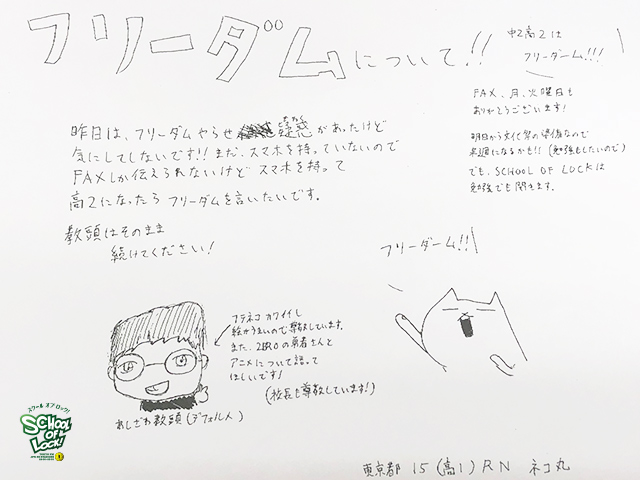 フリーダムについて!!
中2高2は
フリーダーム!!!
FAX、月、火曜日も
ありがとうございます!
明日から文化祭の準備なので
来週になるかも!!(勉強もしたいので)
でも、SCHOOL OF LOCKは
勉強でも聞きます。
昨日は、フリーダムやらせ疑惑があったけど
ぎわく
気にしてしないです!!まだ、スマホを持っていないので
FAXしか伝えられないけどスマホを持って
高2になったらフリーダムを言いたいです。
教頭はそのまま
続けてください!
フリーダーム!!
フテネコカワイイし
絵がうまいので尊敬しています。
また、ZEROの勇者さんと
アニメについて語って
ほしいです!
(校長も尊敬しています!)
あしざわ教頭(デフォルん)
スクールオブロック!
SCHOOL OF LOCK!
東京都 15(高1)RN ネコ丸